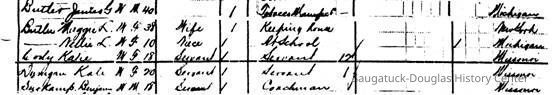 Butler James G W M 40 1 Tobacco Manufact Michigan
Butler Maggie L W F 38 Wife 1 Keeping house New York
— Nellie L W F 10 Niece At School 1 Michigan
Cody Katie W F 18 Servant 1 Servant 12 Missouri
Kate W F 20 Servant 1 Servant 1 Missouri
W M 18 Servant 1 Coachman Missouri
Saugatuck-Douglas History Center